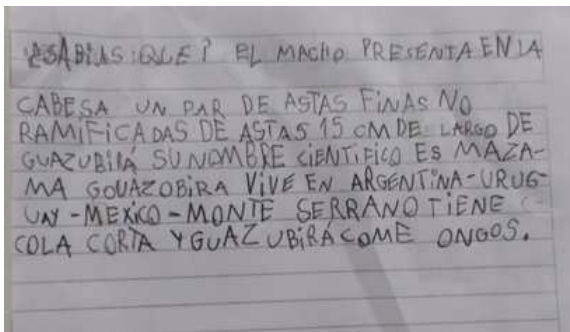 ¿SABIAS:QUE? EL MACHO PRESENTA EN LA
CABESA UN PAR DE ASTAS FINAS NO
RAMIFICADAS DE ASTAS 15 CM DE LARGO DE
GUAZUBIRÁ SU NOMBRE CIENTIFICO ES MAZA-
MA GOUAZOBIRA VIVE EN ARGENTINA-URUG-
UAY-MEXICO-MONTE SERRANO TIENE
COLA CORTA Y GUAZUBIRÁ COME ONGOS.